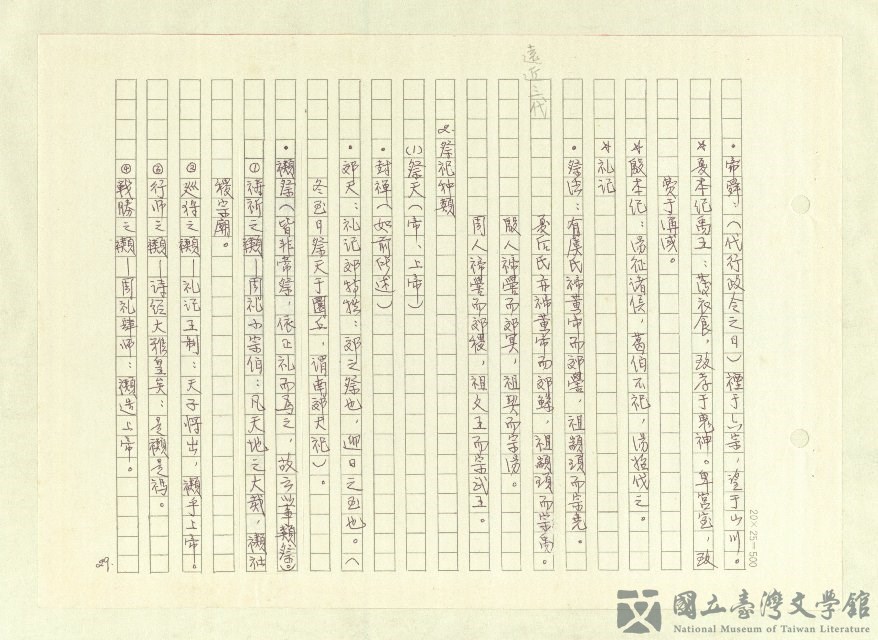 遠近三代
•帝舜：（代行政令之日）禋于六宗，望于山川。
*夏本紀禹王：薄衣食，致孝于鬼神。卑宮室，致
費于溝淢。
*殷本紀：湯征諸侯，葛伯不祀，湯始伐之。
*礼记
•祭法：有虞氏禘黄帝而郊嚳，祖顓頊而宗堯。
夏后氏亦禘黄帝而郊鯀，祖顓頊而宗禹。
殷人禘嚳而郊冥，祖契而宗湯。
周人禘嚳而郊稷，祖文王而宗武王。
祭祀种類
(1)祭天（帝、上帝）
•封禅（如前所述）
•郊天：礼记郊特牲：郊之祭也，迎日之至也。（
冬至日祭天于圜丘，谓南郊大祀）。
•禷祭（皆非常祭，依正礼而爲之，故云以事類祭。
①祷祈之禷—周礼小宗伯：凡天地之大烖，禷社
稷宗廟。
②巡狩之禷—礼记王制：天子將出，禷乎上帝。
③行师之禷—诗经大雅皇矣：是禷是祃。
④戰勝之禷—周礼肆师：禷造上帝。
29.
20×25=500
國立臺灣文学館
National Museum of Taiwan Literature